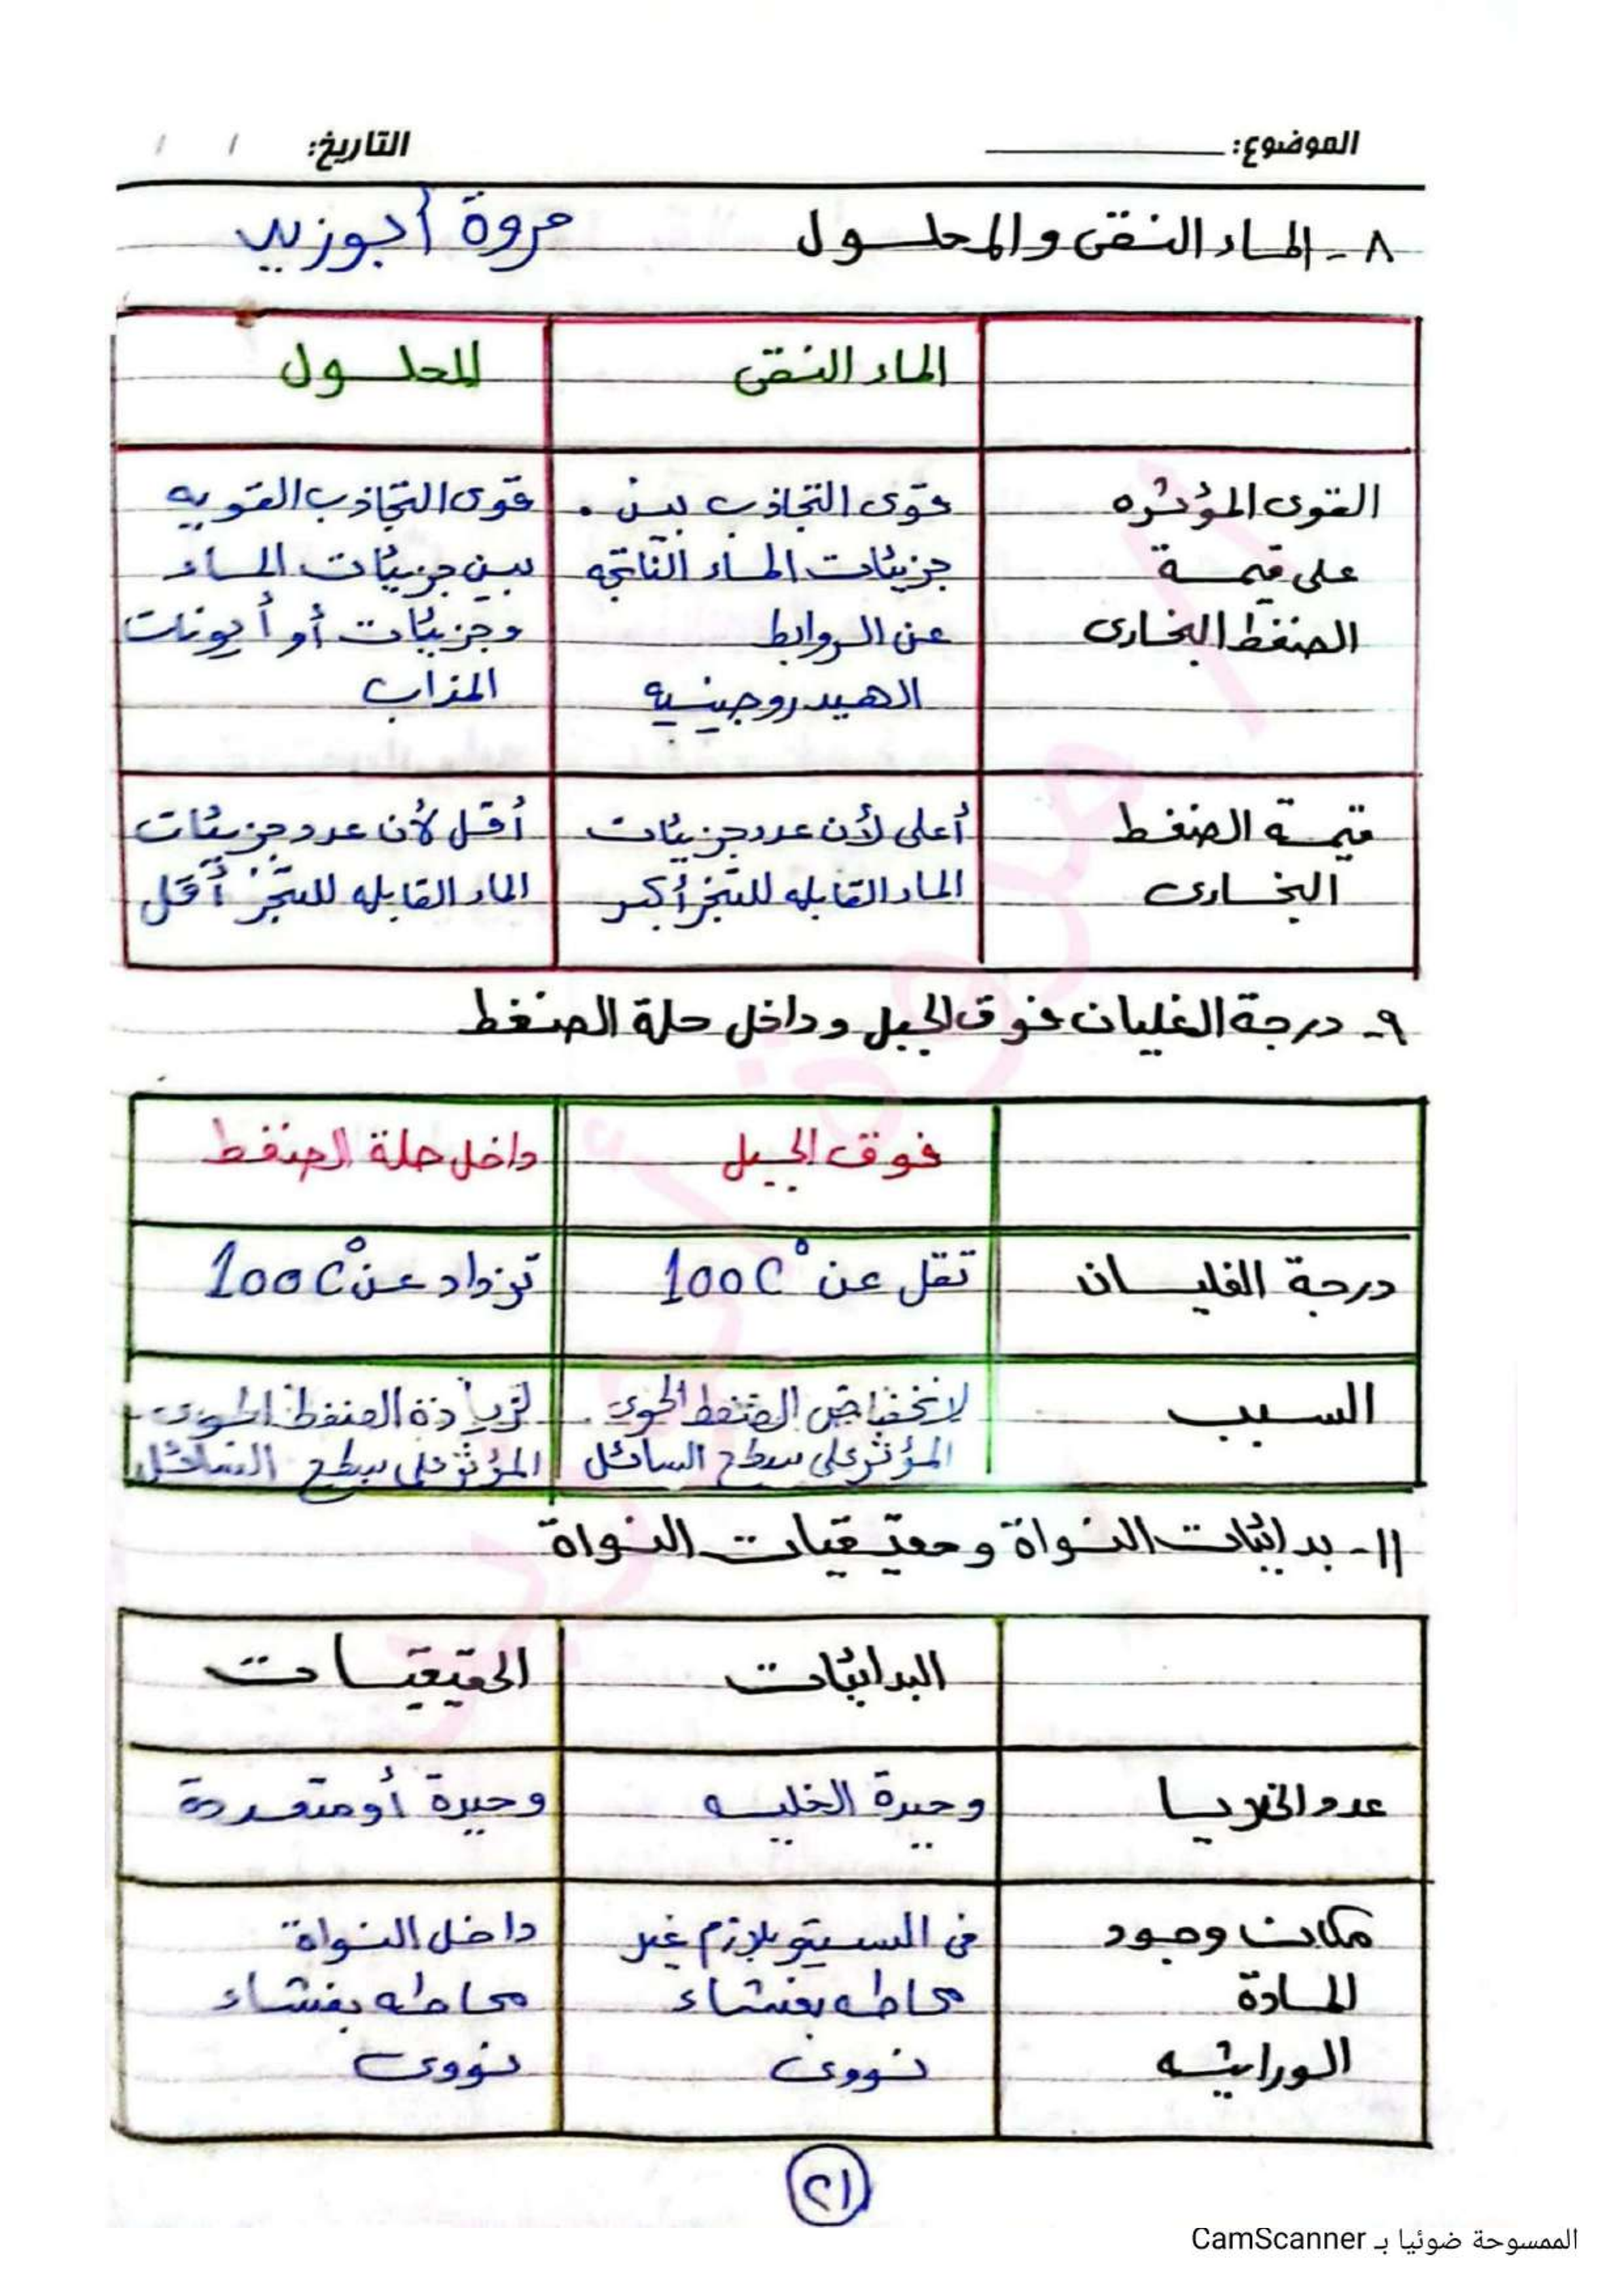 الموضوع: التاريخ: / /
٨- الماء النقى والمحلول مروة أبوزيد
الماء النقى المحلول
القوى المؤثره على قيمة الضغط البخارى
قوى التجاذب بين جزيئات الماء الناتجه عن الروابط الهيدروجينيه
قوى التجاذب القويه بين جزيئات الماء وجزيئات أو أيونات المذاب
قيمة الضغط البخارى
أعلى لأن عدد جزيئات الماء القابله للتبخر أكبر
أقل لأن عدد جزيئات الماء القابله للتبخر أقل
٩- درجة الغليان فوق الجبل وداخل حلة الضغط
فوق الجبل داخل حلة الضغط
درجة الغليان تقل عن 100C° تزداد عن 100C°
السبب
لانخفاض الضغط الجوى المؤثر على سطح السائل
لزيادة الضغط الجوى المؤثر على سطح السائل
١١- بدائيات النواة وحقيقيات النواة
البدائيات الحقيقيات
عدد الخلايا وحيدة الخليه وحيدة أو متعددة
مكان وجود المادة الوراثيه
فى السيتوبلازم غير محاطه بغشاء نووى
داخل النواة محاطه بغشاء نووى
٢١
الممسوحة ضوئيا بـ CamScanner